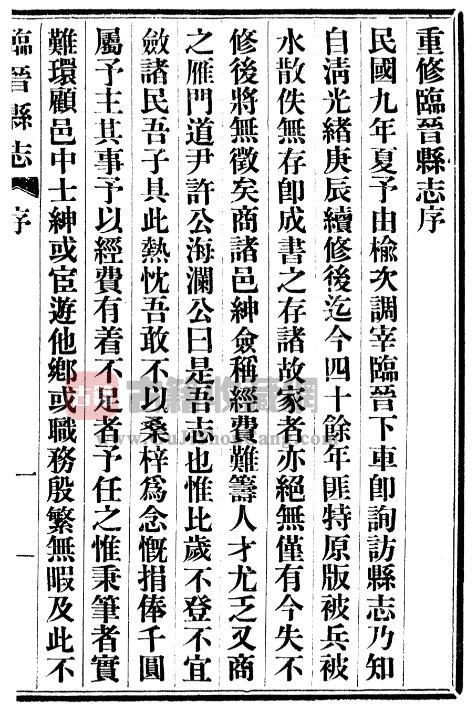 重修臨晉縣志序
民國九年夏予由榆次調宰臨晉下車卽詢訪縣志乃知
自淸光緒庚辰續修後迄今四十餘年匪特原版被兵被
水散佚無存卽成書之存諸故家者亦絕無僅有今失不
修後將無徵矣商諸邑紳僉稱經費難籌人才尤乏又商
之雁門道尹許公海瀾公曰是吾志也惟比歲不登不宜
斂諸民吾子具此熱忱吾敢不以桑梓爲念慨捐俸千圓
屬予主其事予以經費有着不足者予任之惟秉筆者實
難環顧邑中士紳或宦遊他鄕或職務殷繁無暇及此不
臨晉縣志 序 一 一
古籍收藏網